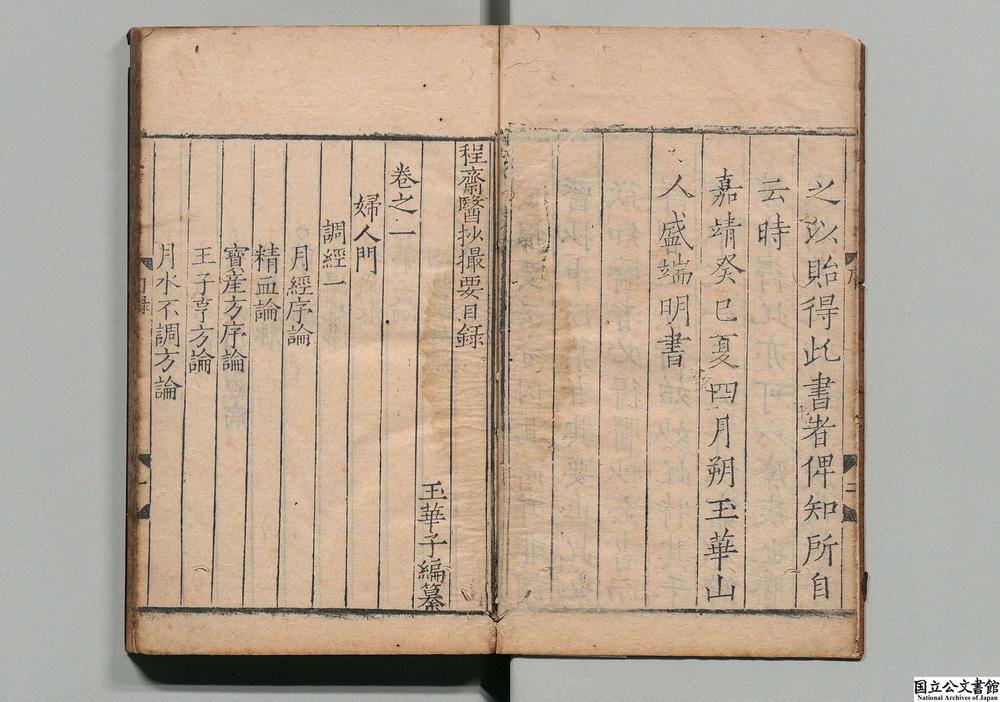 之以貽得此書者俾知所自
云時
嘉靖癸巳夏四月朔玉華山
人盛端明書
序
二
程齋醫抄撮要目錄
玉華子編纂
卷之一
婦人門
調經一
月經序論
精血論
寶産方序論
王子亨方論
月水不調方論
目録
一
国立公文書館
National Archives of Japan